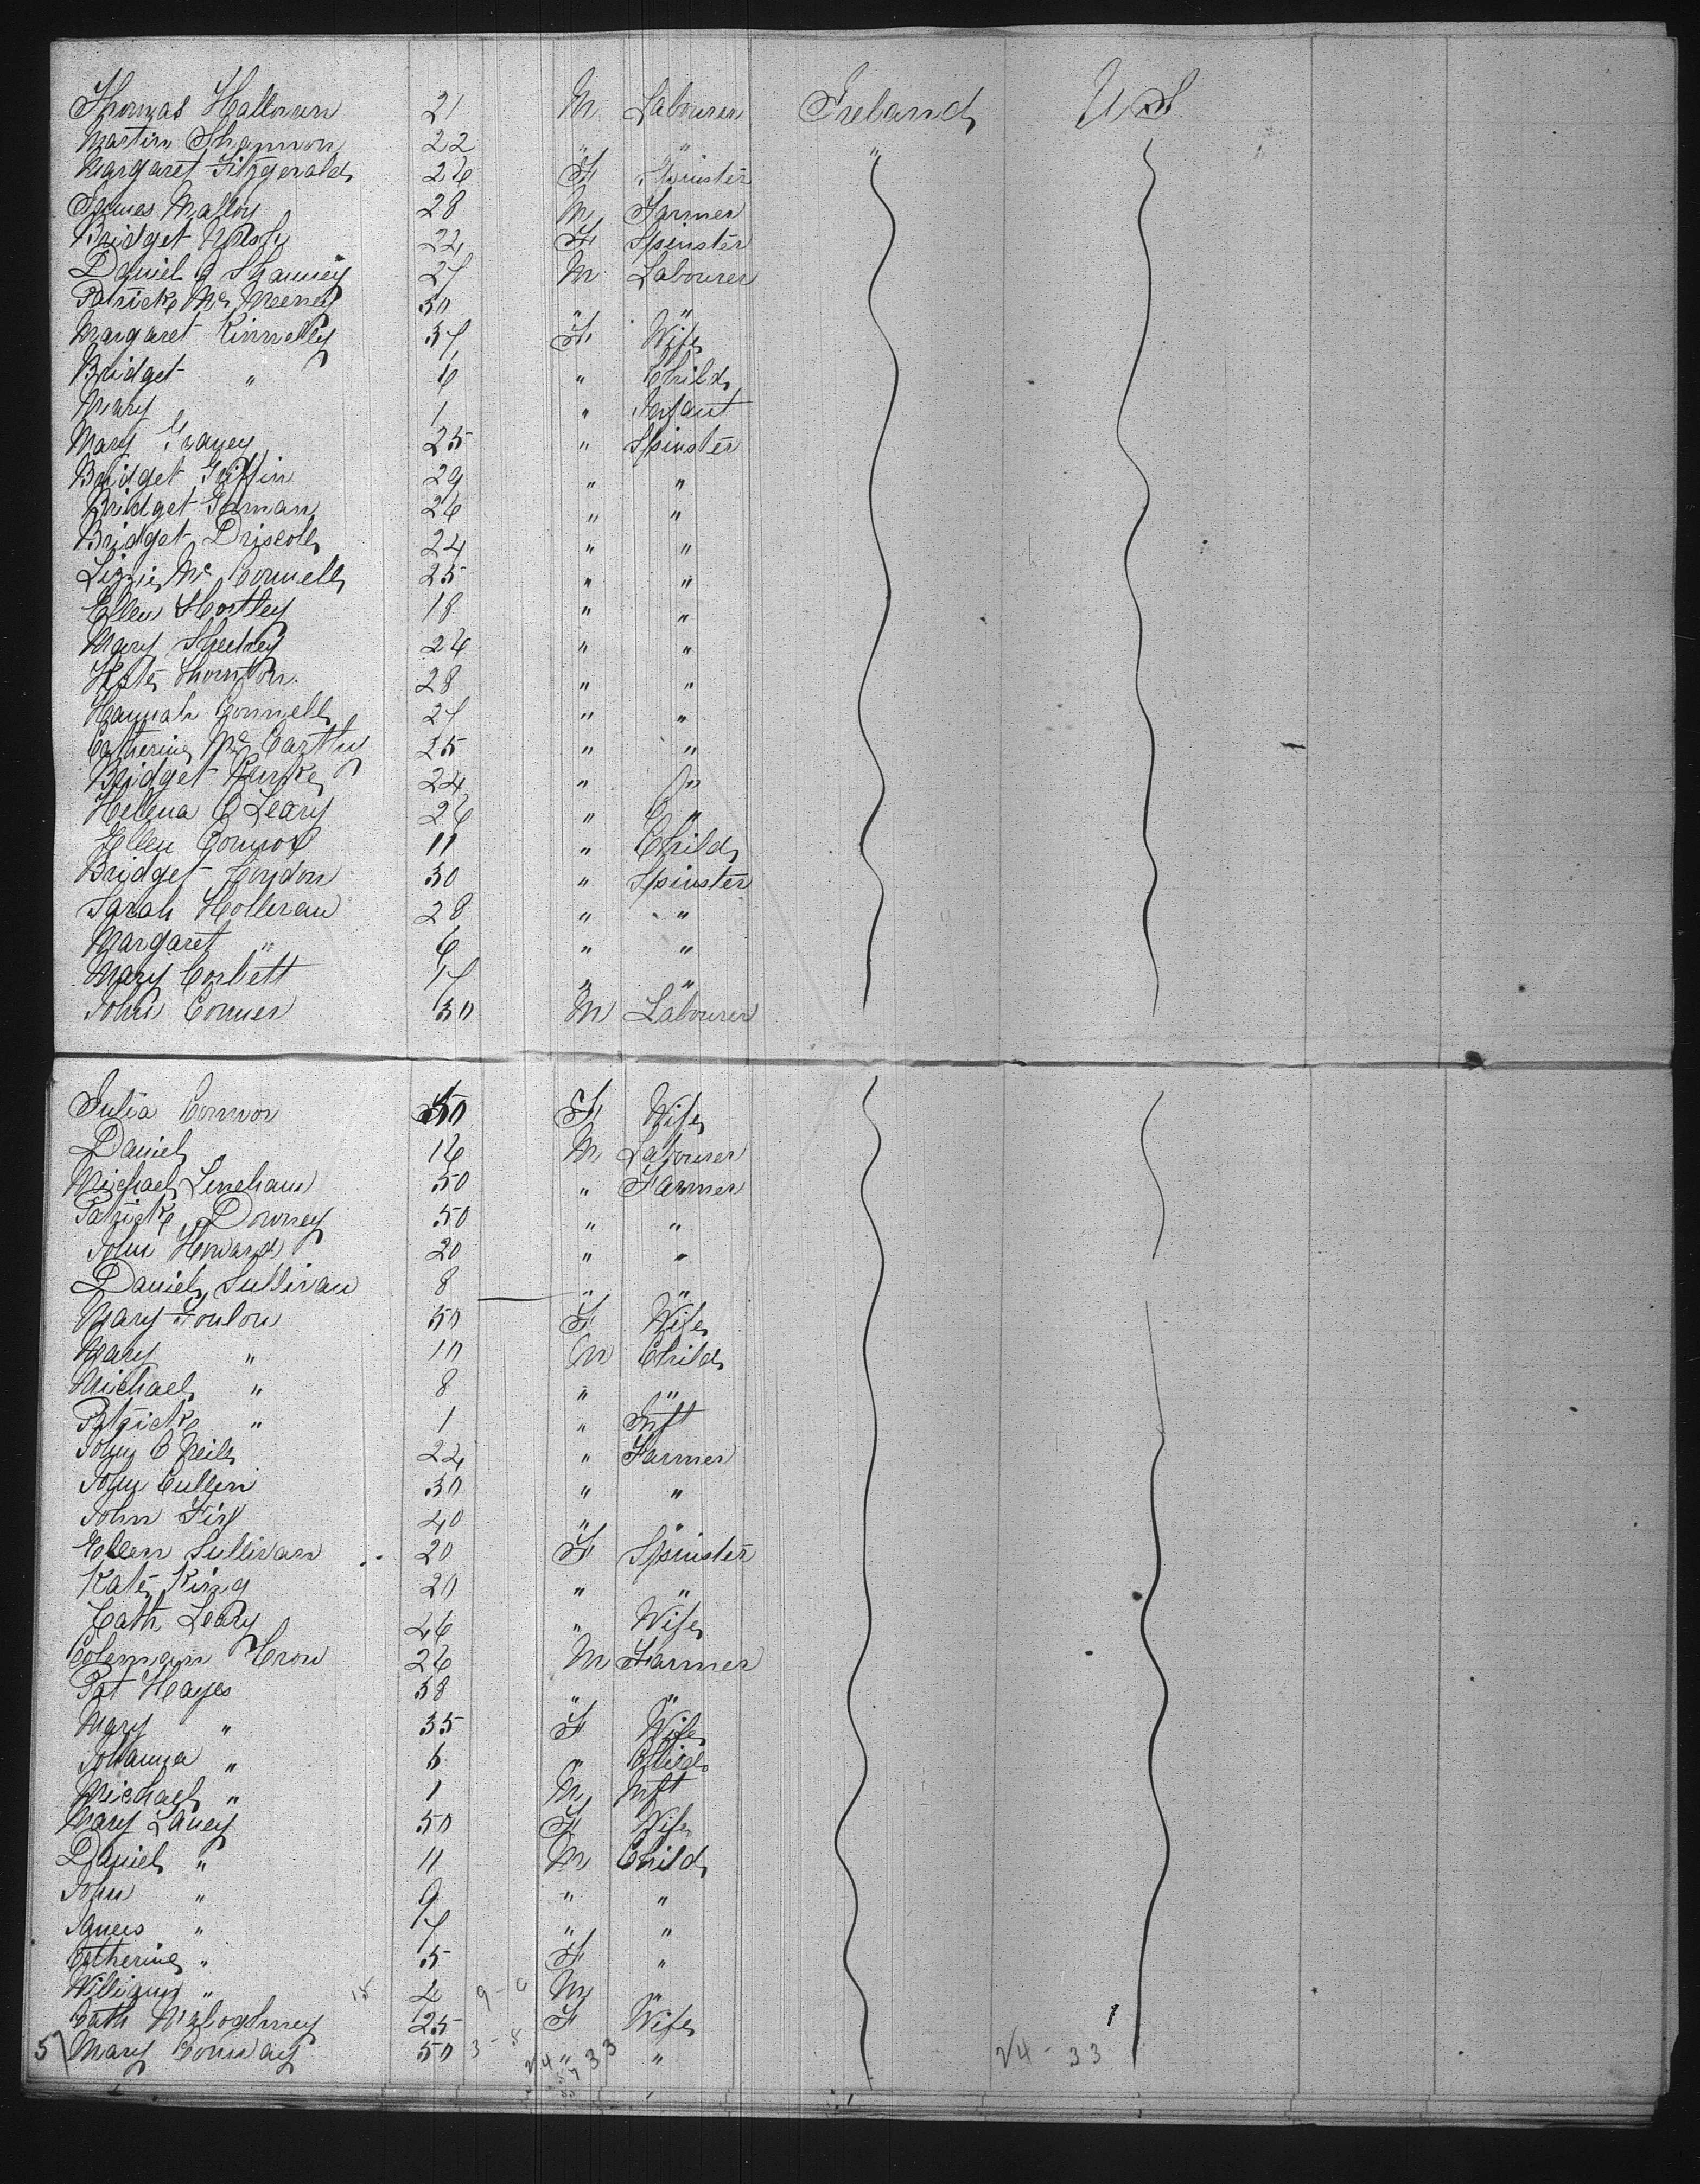 Thomas Halloran 21 M Labourer Ireland U S
Martin Shannon 22 " " "
Margaret Fitzgerald 26 F Spinster
James Malloy 28 M Farmer
Bridget 22 F Spinster
Daniel O Shauney 27 M Labourer
Patrick Mc 50 " "
Margaret Kinnelly 37 F Wife
Bridget " 6 " Child
Mary 1 " Infant
Mary 25 " Spinster
Bridget Griffin 29 " "
Bridget Gorman 26 " "
Bridget Driscoll 24 " "
Lizzie Mc Connell 25 " "
Ellen Hostley 18 " "
Mary Sheehey 26 " "
Kate Thornton 28 " "
Hannah Connell 27 " "
Catherine Mc Carthy 25 " "
Bridget Burke 24 " "
Helena O Leary 26 " "
Ellen Connor 11 " Child
Bridget Condon 30 " Spinster
Sarah Holleran 28 " "
Margaret " 6 " "
Mary Corbett 17 " "
John Conner 30 M Labourer
Julia Connor 50 F Wife
Daniel 16 M Labourer
Michael Linehan 50 " Farmer
Patrick Downey 50 " "
John Howard 20 " "
Daniel Sullivan 8 " "
Mary Fonlon 50 F Wife
Mary " 10 M Child
Michael " 8 " "
Patrick " 1 " Inft
John O Neill 22 " Farmer
John Cullen 30 " "
John 40 " "
Ellen Sullivan 20 F Spinster
Kate King 20 " "
Cath Leary 46 " Wife
Coleman Cron 26 M Farmer
Pat Hayes 38 " "
Mary " 35 F Wife
Johanna " 5 " Child
Michael " 1 M Inft
Mary Laney 50 F Wife
Daniel " 11 M Child
John " 9 " "
James " 7 " "
Catherine " 5 F "
William " 2 M "
Cath 25 F Wife
57 Mary Conway 50 3-8 " "
24 33 24-33